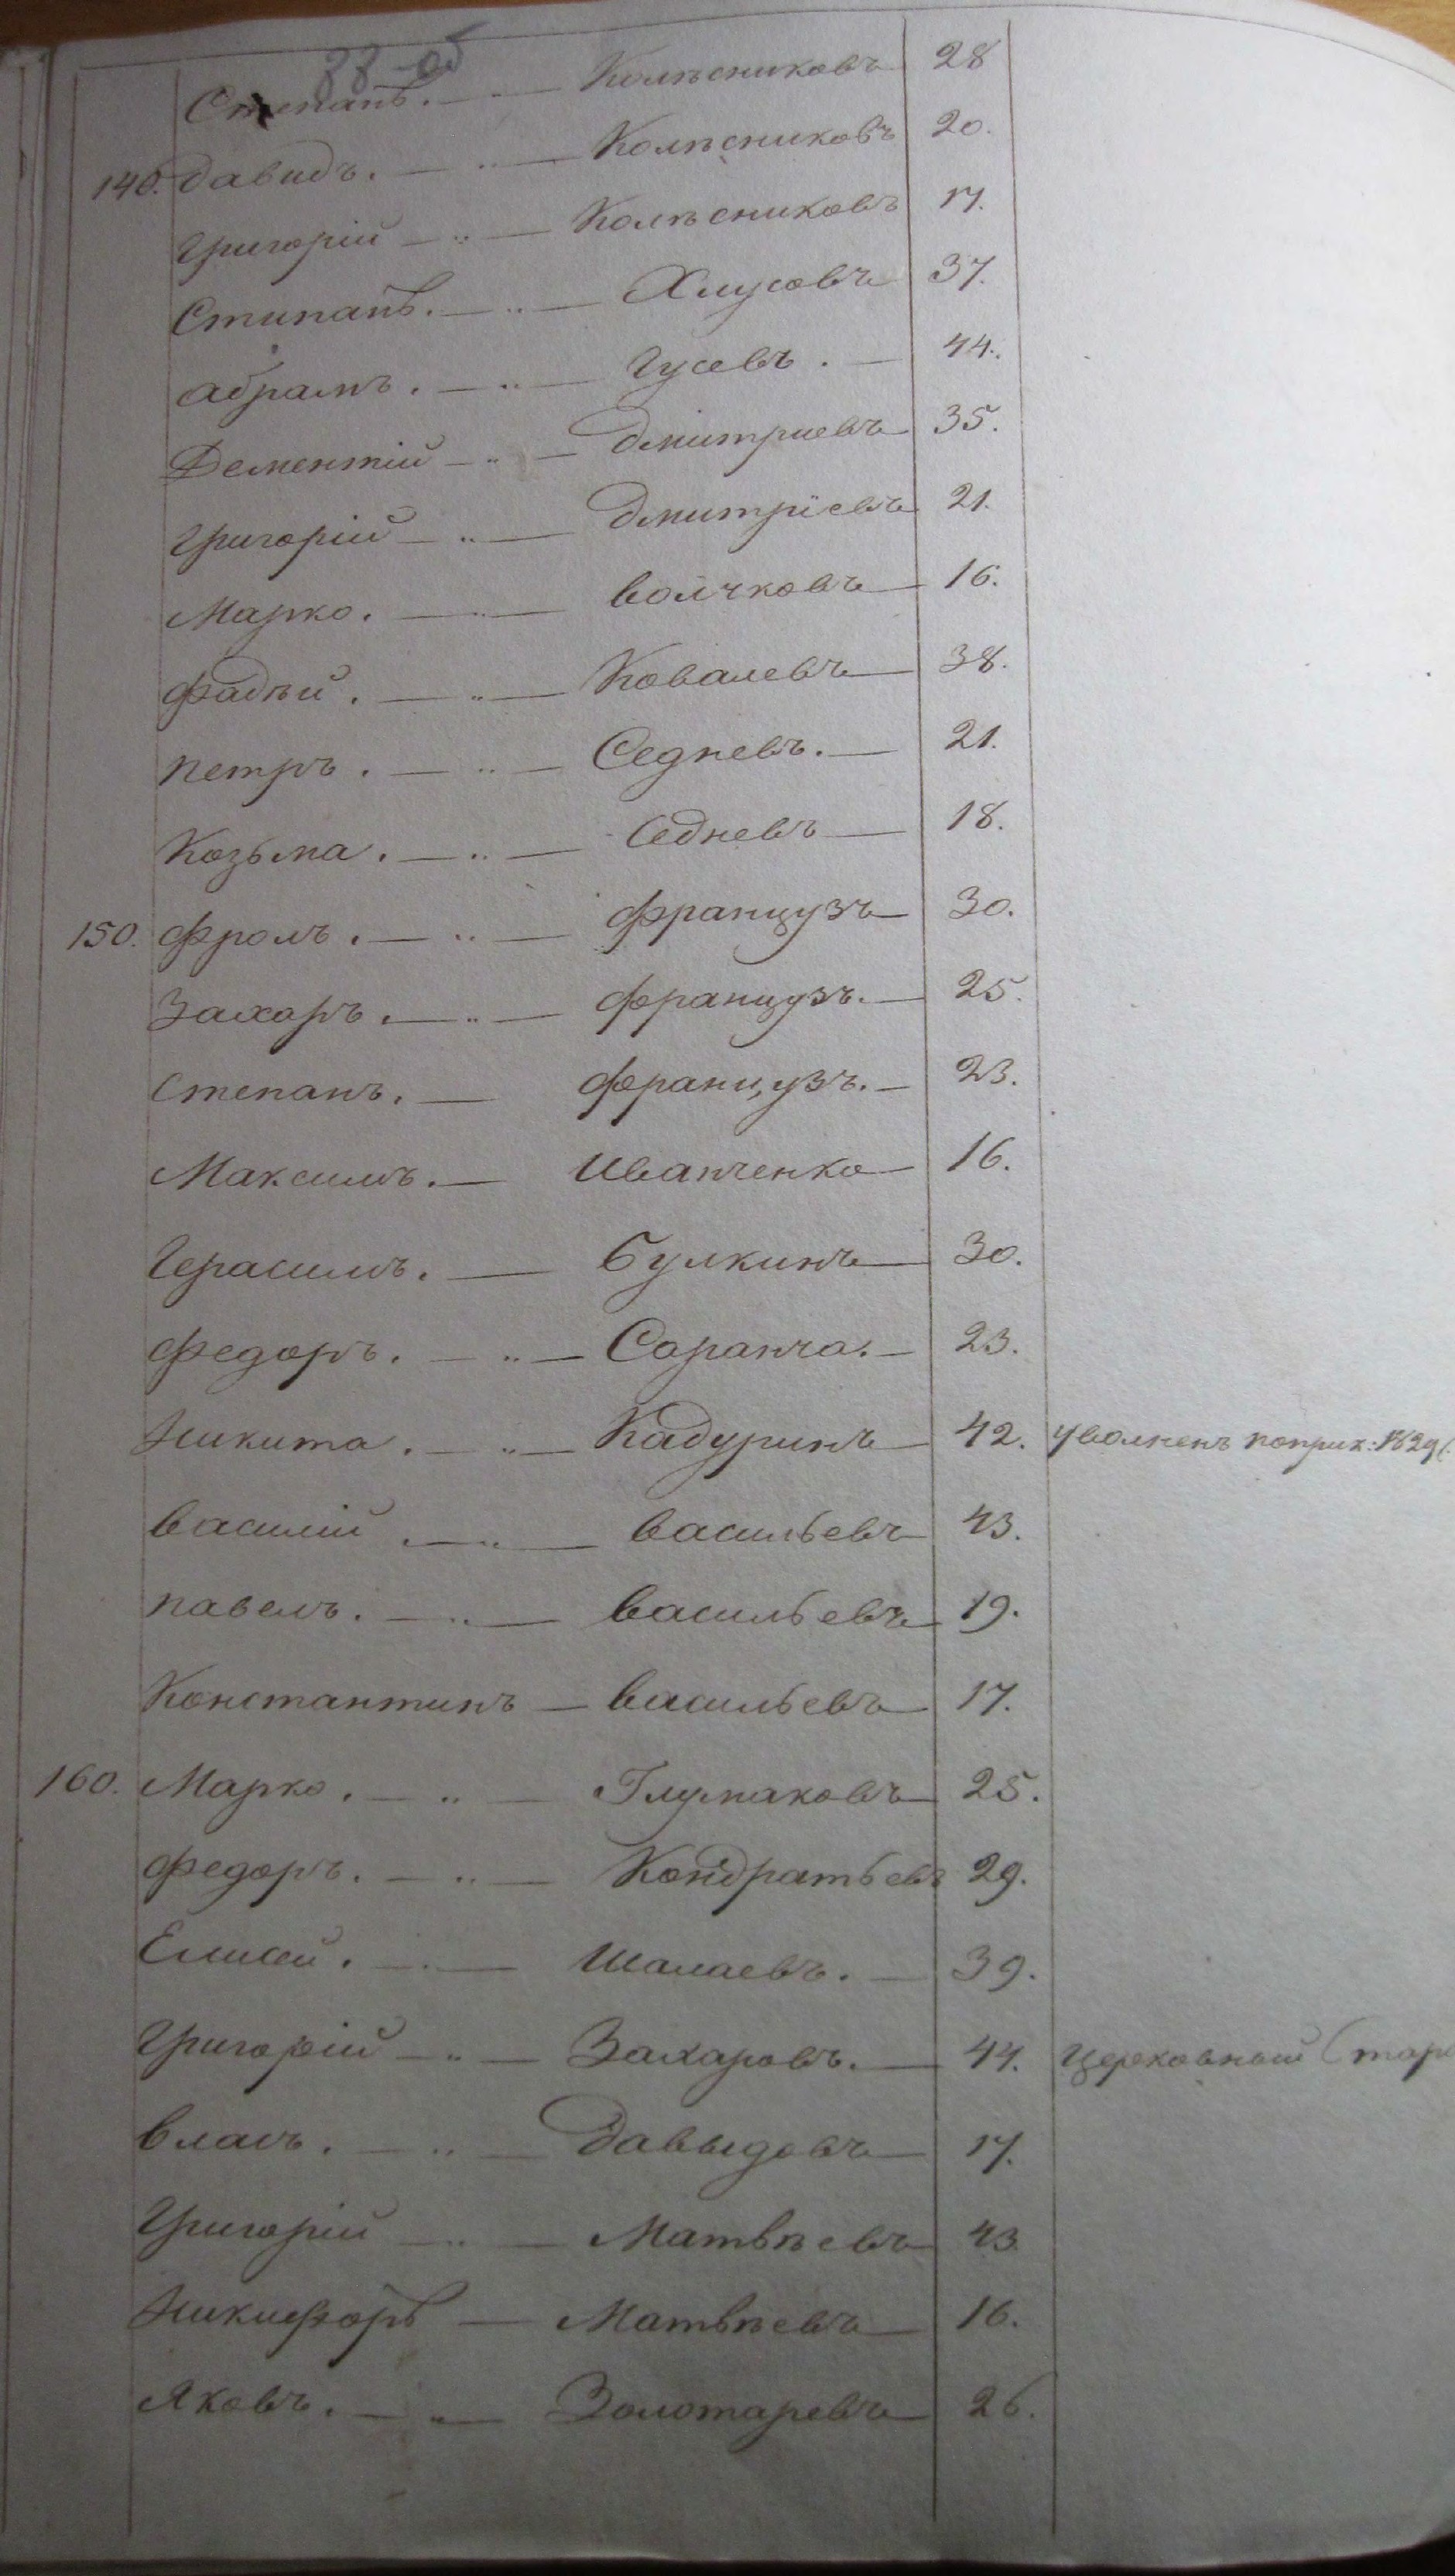 88-об
Степанъ. — Колѣсниковъ 28
140. Давидъ. — „ — Колѣсниковъ 20.
Григорій — „ — Колѣсниковъ 17.
Стипанъ. — „ — Хлусовъ 37.
Абрамъ. — „ — Гусевъ. — 44.
Дементій — „ — Дмитриевъ 35.
Григорій — „ — Дмитріевъ 21.
Марко. — „ — Волчковъ 16.
Фадѣй. — „ — Ковалевъ 38.
Петръ. — „ — Седневъ. — 21.
Козьма. — „ — Седневъ — 18.
150. Фролъ. — „ — Французъ 30.
Захаръ. — „ — Французъ. — 25.
Степанъ. — Французъ. — 23.
Максимъ. — Иванченко 16.
Герасимъ. — Булкинъ 30.
Федоръ. — „ — Саранча. — 23.
Никита. — „ — Кадуринъ 42. уволненъ поприк: 1829
Василій — „ — Васильевъ 43.
Павелъ. — „ — Васильевъ 19.
Константинъ — Васильевъ 17.
160. Марко. — „ — Глумаковъ 25.
Федоръ. — „ — Кондратьевъ 29.
Елисей. — „ — Шалаевъ. — 39.
Григорій — „ — Захаровъ. — 44. Церковный Стар
Власъ. — „ — Давыдовъ 17.
Григорій — „ — Матвѣевъ 43
Никифоръ — Матвѣевъ 16.
Яковъ. — „ — Золотаревъ 26.